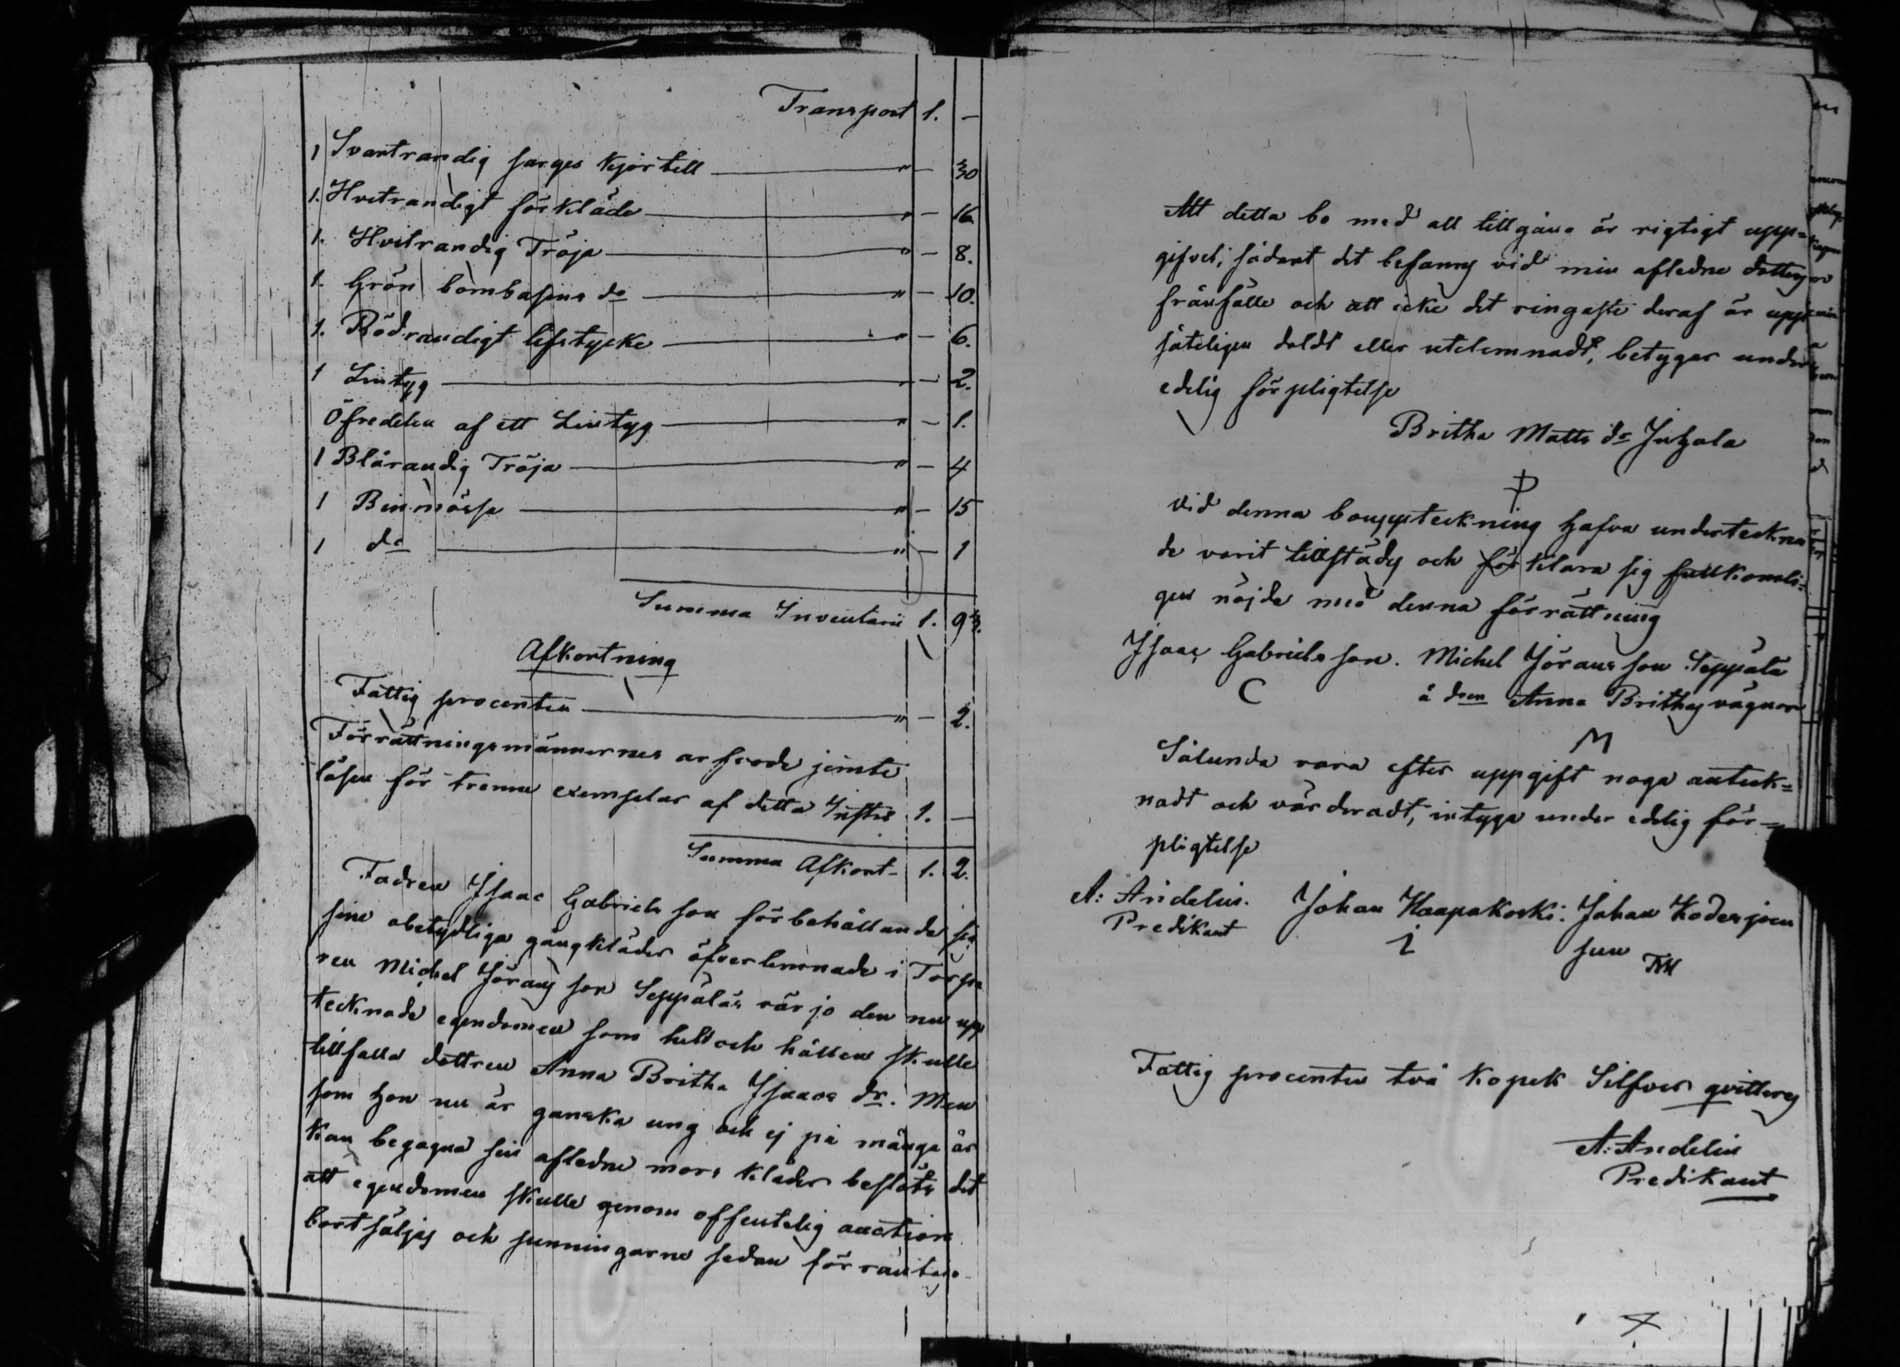 Transport 1. —
1 Svartrandig sarges Kjortell " — 30
1. Hvitrandigt förkläde " — 16
1. Hvitrandig Tröja " — 8.
1. Grön bombasins do " — 10.
1. Rödrandigt lifstycke " — 6.
1 Lintyg " — 2.
Öfredelen af ett Lintyg " — 1.
1 Blårandig Tröja " — 4
1 Binmössa " — 15
1 do " — 1
Summa Inventarii 1. 93.
Afkortning
Fattig procenten " — 2.
Förrättningsmännernes arfvode jemte
lösen för trenne exemplar af detta Instr 1. —
Summa Afkort- 1. 2.
Fadren Isaac Gabriels son förbehållande sig
sine obetydliga gångkläder öfverlemnade i Torpa
ren Michel Jörans son Seppäläs värjo den nu upp
tecknade egendomen som helt och hållen skulle
tillfalla dottren Anna Britha Isaacs dr. Men
som hon nu är ganska ung och ej på många år
kan begagna sin aflednе mors kläder beslöts det
att egendomen skulle genom offentelig auction
bortsäljas och penningarne sedan förräntas
Att detta bo med all tillgång är rigtigt upp=
gifvet, sådant det befanns vid min aflednе dotters
frånfälle och att icke det ringaste deraf är upp
såteligen doldt eller utelemnadt, betygar under
edelig förpligtelse
Britha Matts dr Juhola
Vid denna bouppteckning hafva undertecknа
de varit tillstädes och förklara sig fullkomli=
gen nöjde med denna förrättning
Isaac Gabriels son. Michel Jörans son Seppälä
C å dren Anna Brithas vägnar
M
Sålunda vara efter uppgift noga anteck=
nadt och värderadt, intyga under edelig för=
pligtelse
A: Andelin. Johan Haapakoski. Johan
Predikant
Fattig procenten två Kopek Silfver qvitteras
A: Andelin
Predikant